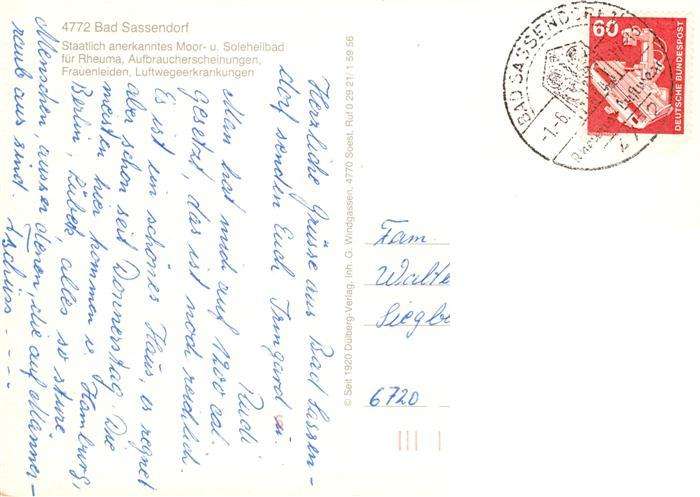 4772 Bad Sassendorf
Staatlich anerkanntes Moor- u. Soleheilbad
für Rheuma, Aufbraucherscheinungen,
Frauenleiden, Luftwegeerkrankungen
Herzliche Grüsse aus Bad Sassen-
dorf senden Euch Irmgard u.
Rudi
Man hat mich auf 1200 cal.
gesetzt, das ist noch reichlich.
Es ist ein schönes Haus, es regnet
aber schon seit Donnerstag. Die
meisten hier kommen v. Hamburg,
Berlin, Lübeck, alles so sture
Menschen, ausser denen, die auf Männer-
raub aus sind. Tschüss - - -
© Seit 1920 Dülberg-Verlag, Inh. G. Windgassen, 4770 Soest, Ruf 0 29 21 / 1 59 56
BAD SASSENDORF
-1.-6.
60
DEUTSCHE BUNDESPOST
Fam.
Walte
Sieglb
6720